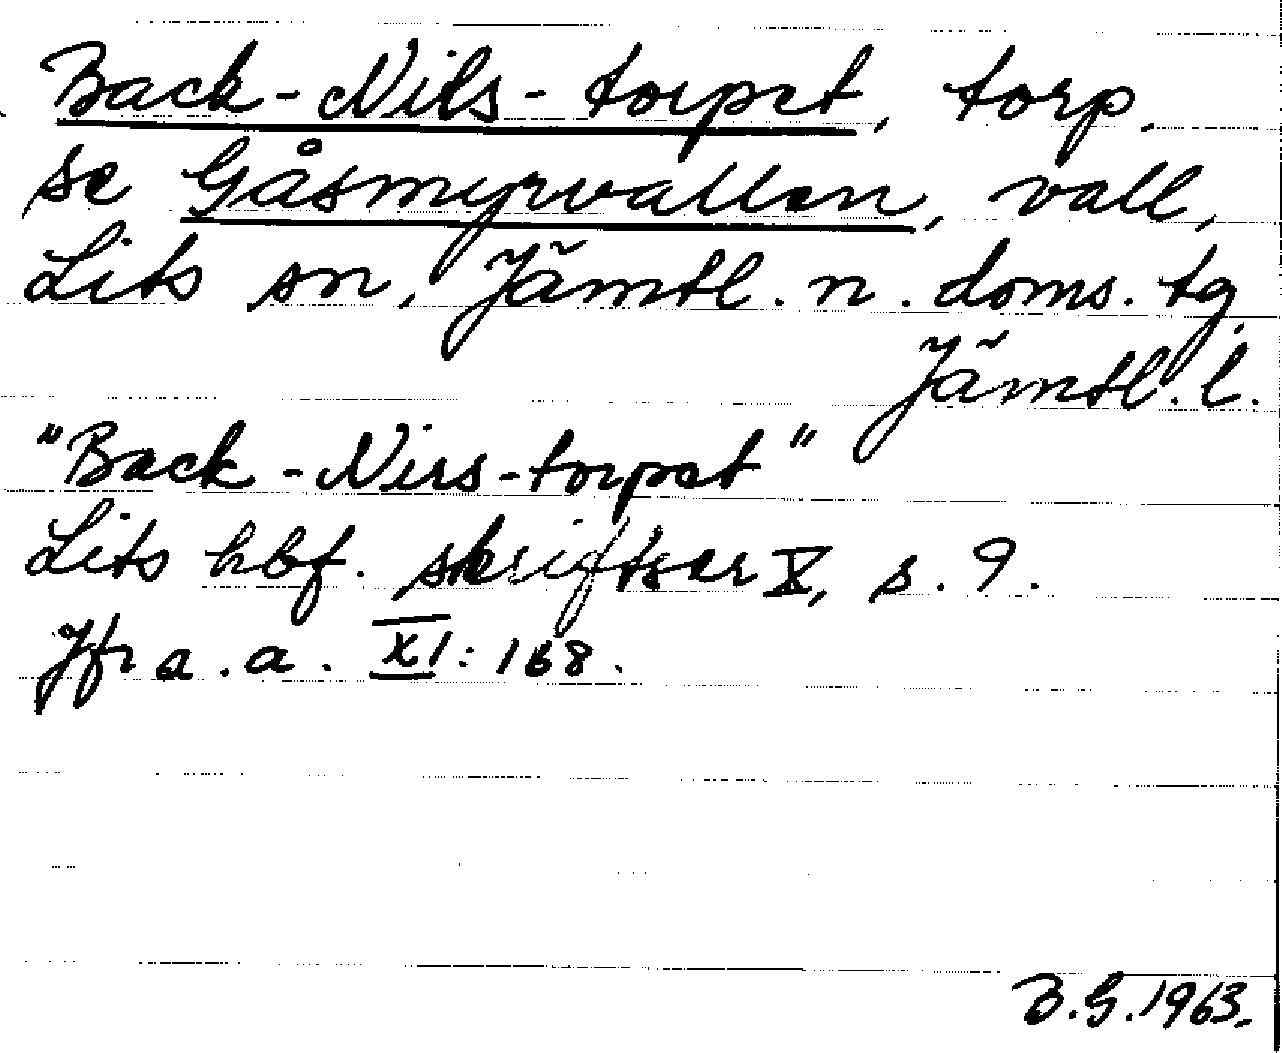 Back-Nils-torpet, torp,
se Gåsmyrvallen, vall,
Lits sn, Jämtl. n. doms. tg,
Jämtl. l.
"Back-Nirs-torpet"
Lits hbf. skriftser X, s. 9.
Jfr a.a. XI: 168.
B.G. 1963.